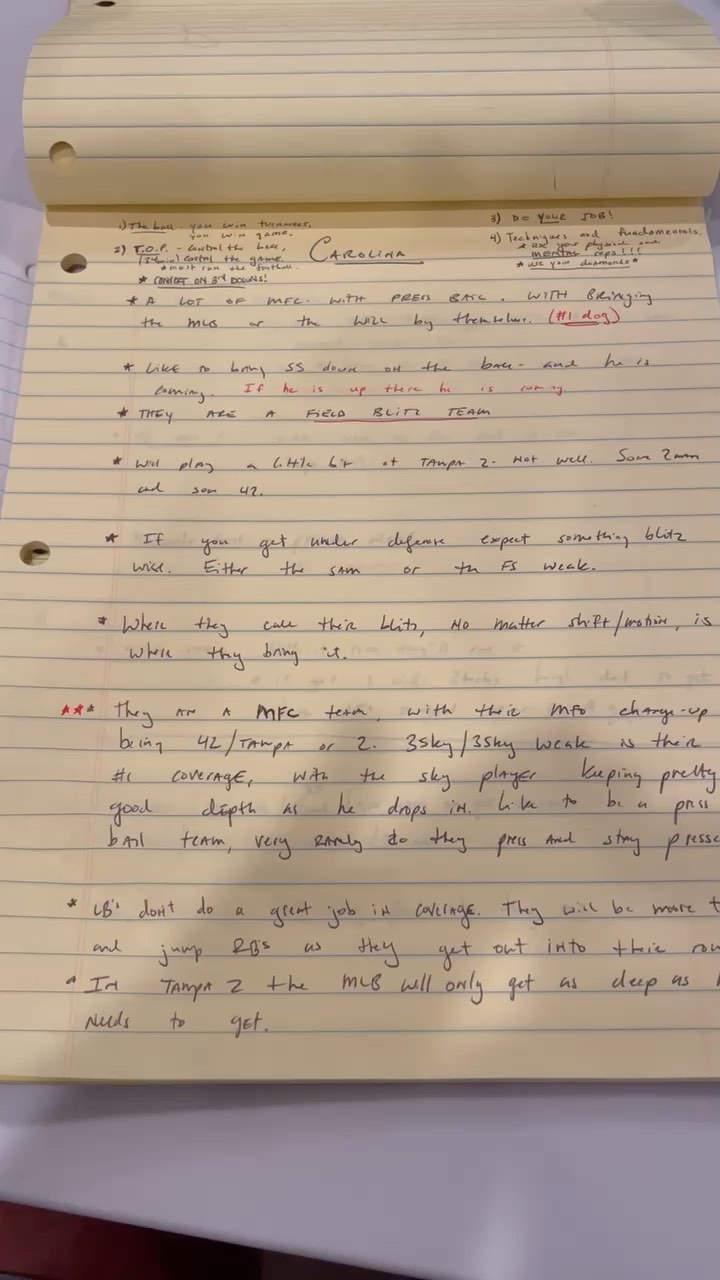 1) The ball - you win turnovers,
you win game.
2) T.O.P. - control the ball,
control the game.
CAROLINA
3) DO YOUR JOB!
4) Techniques and fundamentals.
* use your physical and
mental reps!!!
* use your diamonds *
* CONVERT ON 3RD DOWNS!
* A LOT OF MFC. WITH PRESS BAIL. WITH Bringing
the MLB or the WILL by themselves. (#1 dog)
* LIKE to bring SS down on the ball - and he is
coming. If he is up there he is coming
* THEY ARE A FIELD BLITZ TEAM
* Will play a little bit of TAMPA 2 - Not well. Some 2 man
and som 42.
* If you get under defense expect something blitz
wise. Either the SAM or th FS weak.
* Where they call their blitz, NO matter shift/motion, is
where they bring it.
*** They are a MFC team, with their MFO change-up
being 42/TAMPA or 2. 3sky/3sky weak is their
#1 coverage, with the sky player keeping pretty
good depth as he drops in. Like to be a press
bail team, very rarely do they press and stay presse
* LB's don't do a great job in coverage. They will be more t
and jump RB's as they get out into their rou
* In TAMPA 2 the MLB will only get as deep as h
needs to get.